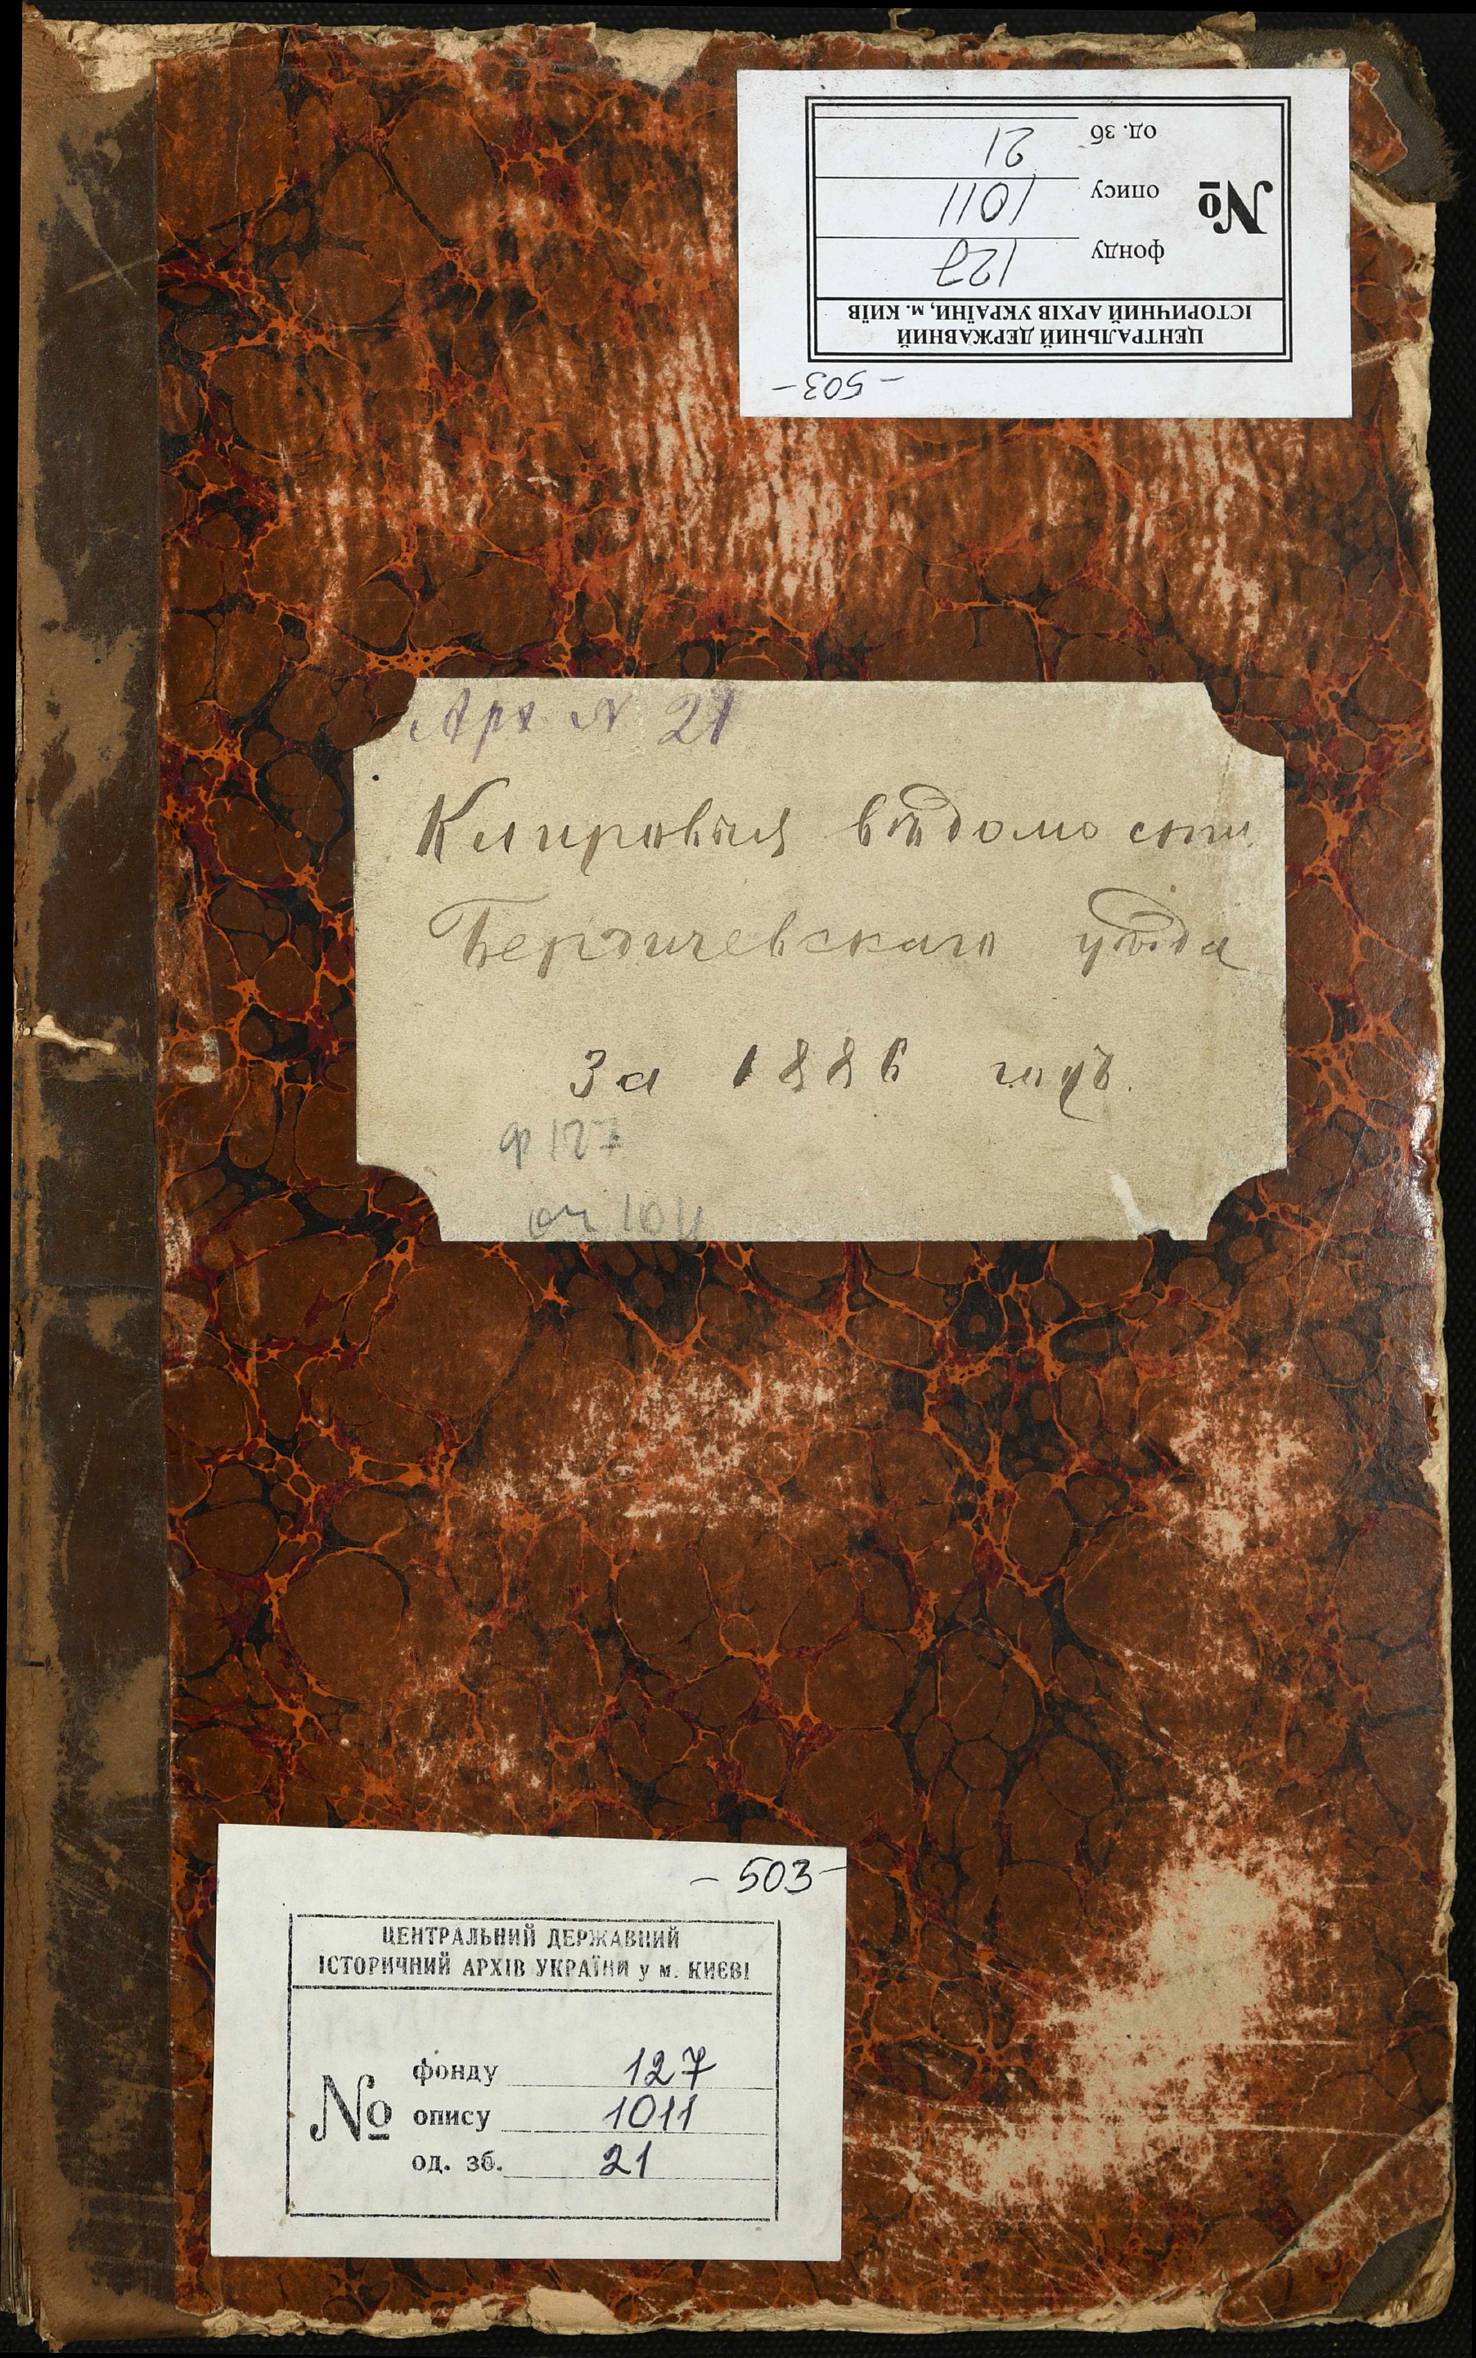 од. зб 21
№ опису 1011
фонду 127
ЦЕНТРАЛЬНИЙ ДЕРЖАВНИЙ
ІСТОРИЧНИЙ АРХІВ УКРАЇНИ, м. КИЇВ
- 503 -
Арх. N 21
Клировыя вѣдомости
Бердичевскаго уѣзда
За 1886 годъ.
ф 127
оп 1011
- 503 -
ЦЕНТРАЛЬНИЙ ДЕРЖАВНИЙ
ІСТОРИЧНИЙ АРХІВ УКРАЇНИ у м. КИЄВІ
фонду 127
№ опису 1011
од. зб. 21